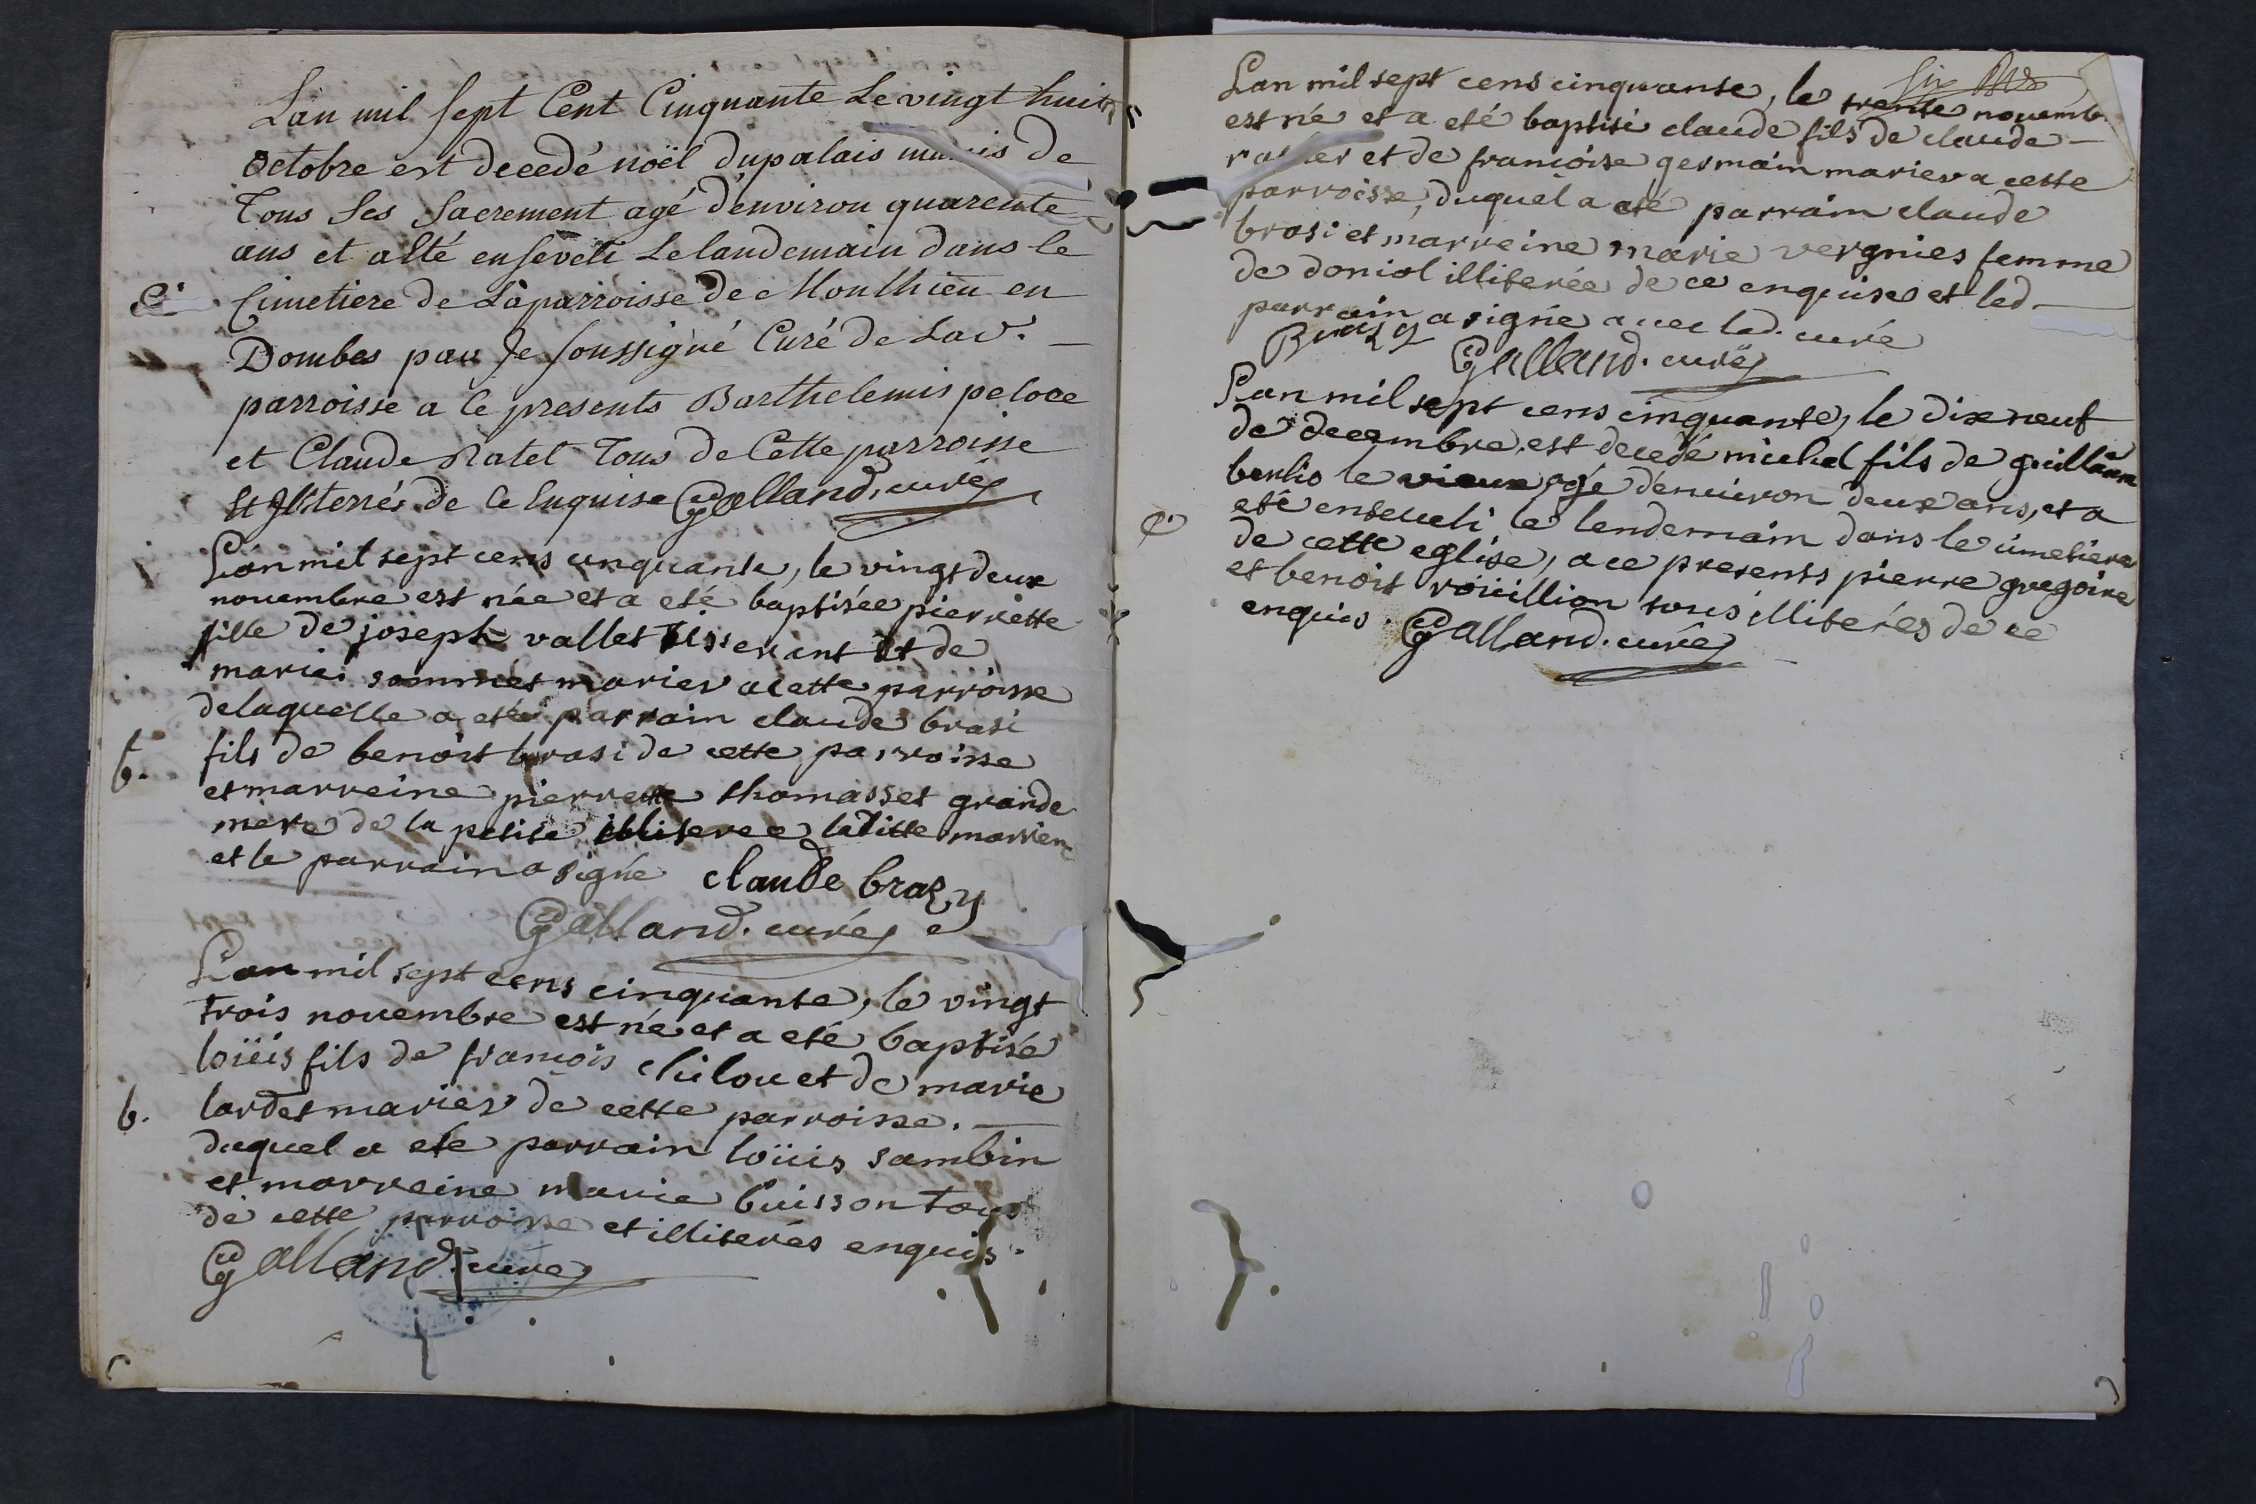 Lan mil sept Cent Cinquante Le vingt huit
octobre est decedé noël dupalais munis de
Tous Ses Sacrement agé d'environ quarente
ans et a£té enseveli Le landemain dans le
e. Cimetiere de La parroisse de Monthieu en
Dombes par Je soussigné Curé de Lad.
parroisse a Ce presents Barthelemis peloce
et Claude Ratet Tous de Cette parroisse
et Illiterrés de Ce Enquise Galland, curé
Lan mil sept cens cinquante, le vingt deux
novembre est née et a eté baptisée pierrette
fille de joseph vallet tisserant et de
marie sommet mariez a cette parroisse
de laquelle a eté parrain claude brasi
b. fils de benoit brasi de cette parroisse
et marreine pierrette thomasset grande
mere de la petite illiteree laditte marrein
et le parrain a signé claude brazy
Galland. curé
Lan mil sept cens cinquante, le vingt
trois novembre est né et a eté baptisé
loüis fils de francois chilou et de marie
b. lardet mariez de cette parroisse.
duquel a eté parrain loüis sambin
et marreine marie buisson tous
de cette parroisse et illiterés enquis.
Galland. curé
Lan mil sept cens cinquante, le trente novemb.
est né et a eté baptisé claude fils de claude
et de francoise germain mariez a cette
parroisse, duquel a eté parrain claude
brasi et marreine marie vergnies femme
de doniol illiterée de ce enquises et led.
parrain a signé avec led. curé
Brazy Galland. curé
Lan mil sept cens cinquante, le dix neuf
de decembre est decedé michel fils de guillaum
berlio le vieux, agé d'environ deux ans, et a
e. eté enseveli le lendemain dans le cimetiere
de cette eglise, a ce presents pierre gregoire
et benoit roüillion tous illiterés de ce
enquis. Galland. curé